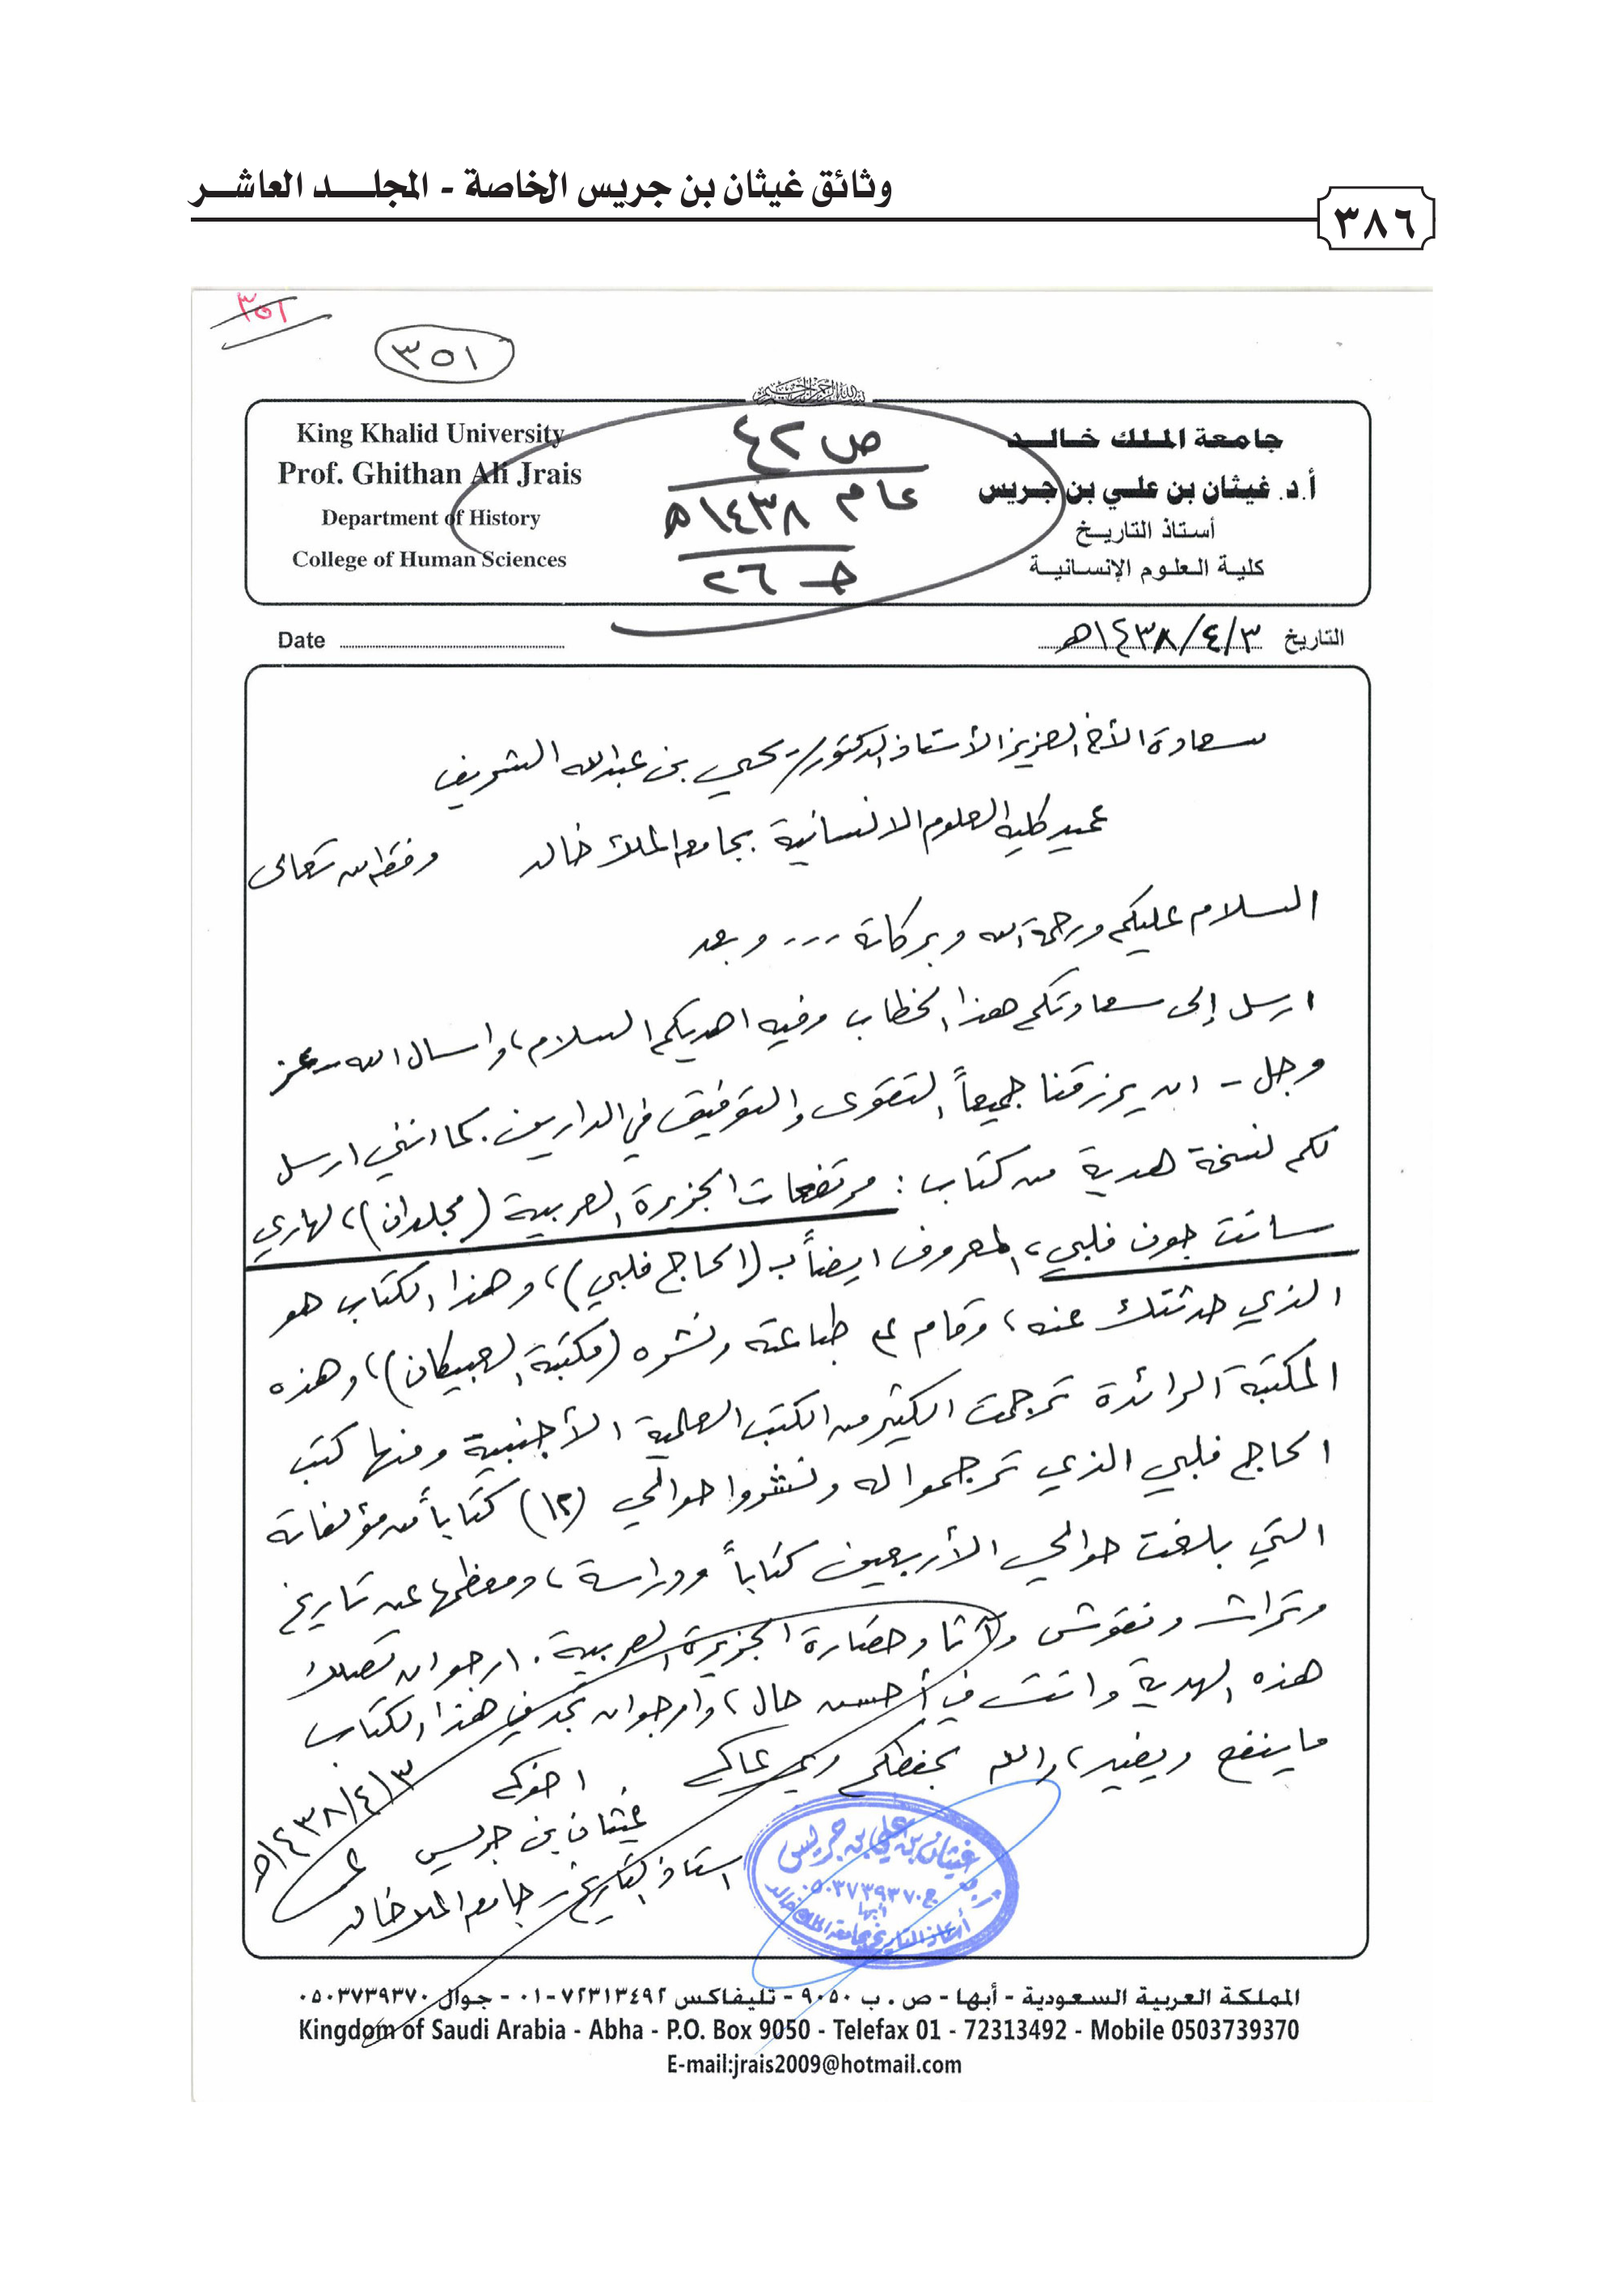 وثائق غيثان بن جريس الخاصة - المجلد العاشر
٣٨٦
٣٥١
٣٥١
بسم الله الرحمن الرحيم
جامعة الملك خالد
أ.د. غيثان بن علي بن جريس
أستاذ التاريخ
كلية العلوم الإنسانية
ص ٤٢
عام ١٤٣٨هـ
جـ ٢٦
King Khalid University
Prof. Ghithan Ali Jrais
Department of History
College of Human Sciences
التاريخ ١٤٣٨/٤/٣هـ
Date
سعادة الأخ العزيز الأستاذ الدكتور/ يحيى بن عبدالله الشريف
عميد كلية العلوم الانسانية بجامعة الملك خالد وفقه الله تعالى
السلام عليكم ورحمة الله وبركاته ... وبعد
ارسل إلى سعادتكم هذا الخطاب وفيه اهديكم السلام، واسال الله - عز
وجل - ان يرزقنا جميعاً التقوى والتوفيق في الدارين. كما انني ارسل
لكم نسخة هدية من كتاب: مرتفعات الجزيرة العربية (مجلدان)، لهاري
سانت جون فلبي، المعروف ايضاً ب (الحاج فلبي)، وهذا الكتاب هو
الذي حدثتك عنه، وقام على طباعته ونشره (مكتبة العبيكان)، وهذه
المكتبة الرائدة ترجمت الكثير من الكتب العلمية الأجنبية ومنها كتب
الحاج فلبي الذي ترجموا له ونشروا حوالي (١٢) كتاباً من مؤلفاته
التي بلغت حوالي الأربعين كتاباً ودراسة، ومعظمها عن تاريخ
وتراث ونقوش وآثا وحضارة الجزيرة العربية. ارجو ان تصلك
هذه الهدية وانت في أحسن حال، وارجو ان تجد في هذا الكتاب
ماينفع ويفيد، والله يحفظكم ويرعاكم. اخوكم
غيثان بن جريس
استاذ التاريخ - جامعة الملك خالد
١٤٣٨/٤/٣هـ
غيثان بن علي بن جريس
ج ٠٥٠٣٧٣٩٣٧٠
أبها
أستاذ التاريخ بجامعة الملك خالد
المملكة العربية السعودية - أبها - ص . ب ٩٠٥٠ - تليفاكس ٧٢٣١٣٤٩٢-٠١ - جوال ٠٥٠٣٧٣٩٣٧٠
Kingdom of Saudi Arabia - Abha - P.O. Box 9050 - Telefax 01 - 72313492 - Mobile 0503739370
E-mail:jrais2009@hotmail.com